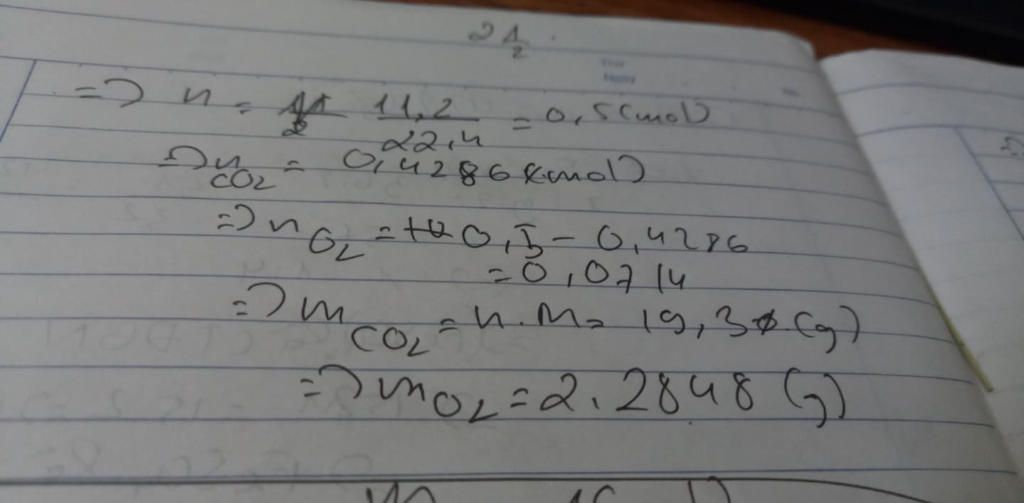 => n = 11,2/22,4 = 0,5(mol)
=> nCO2 = 0,4286(mol)
=> nO2 = 0,5 - 0,4286
= 0,0714
=> mCO2 = n.M = 19,3 (g)
=> mO2 = 2.2848 (g)